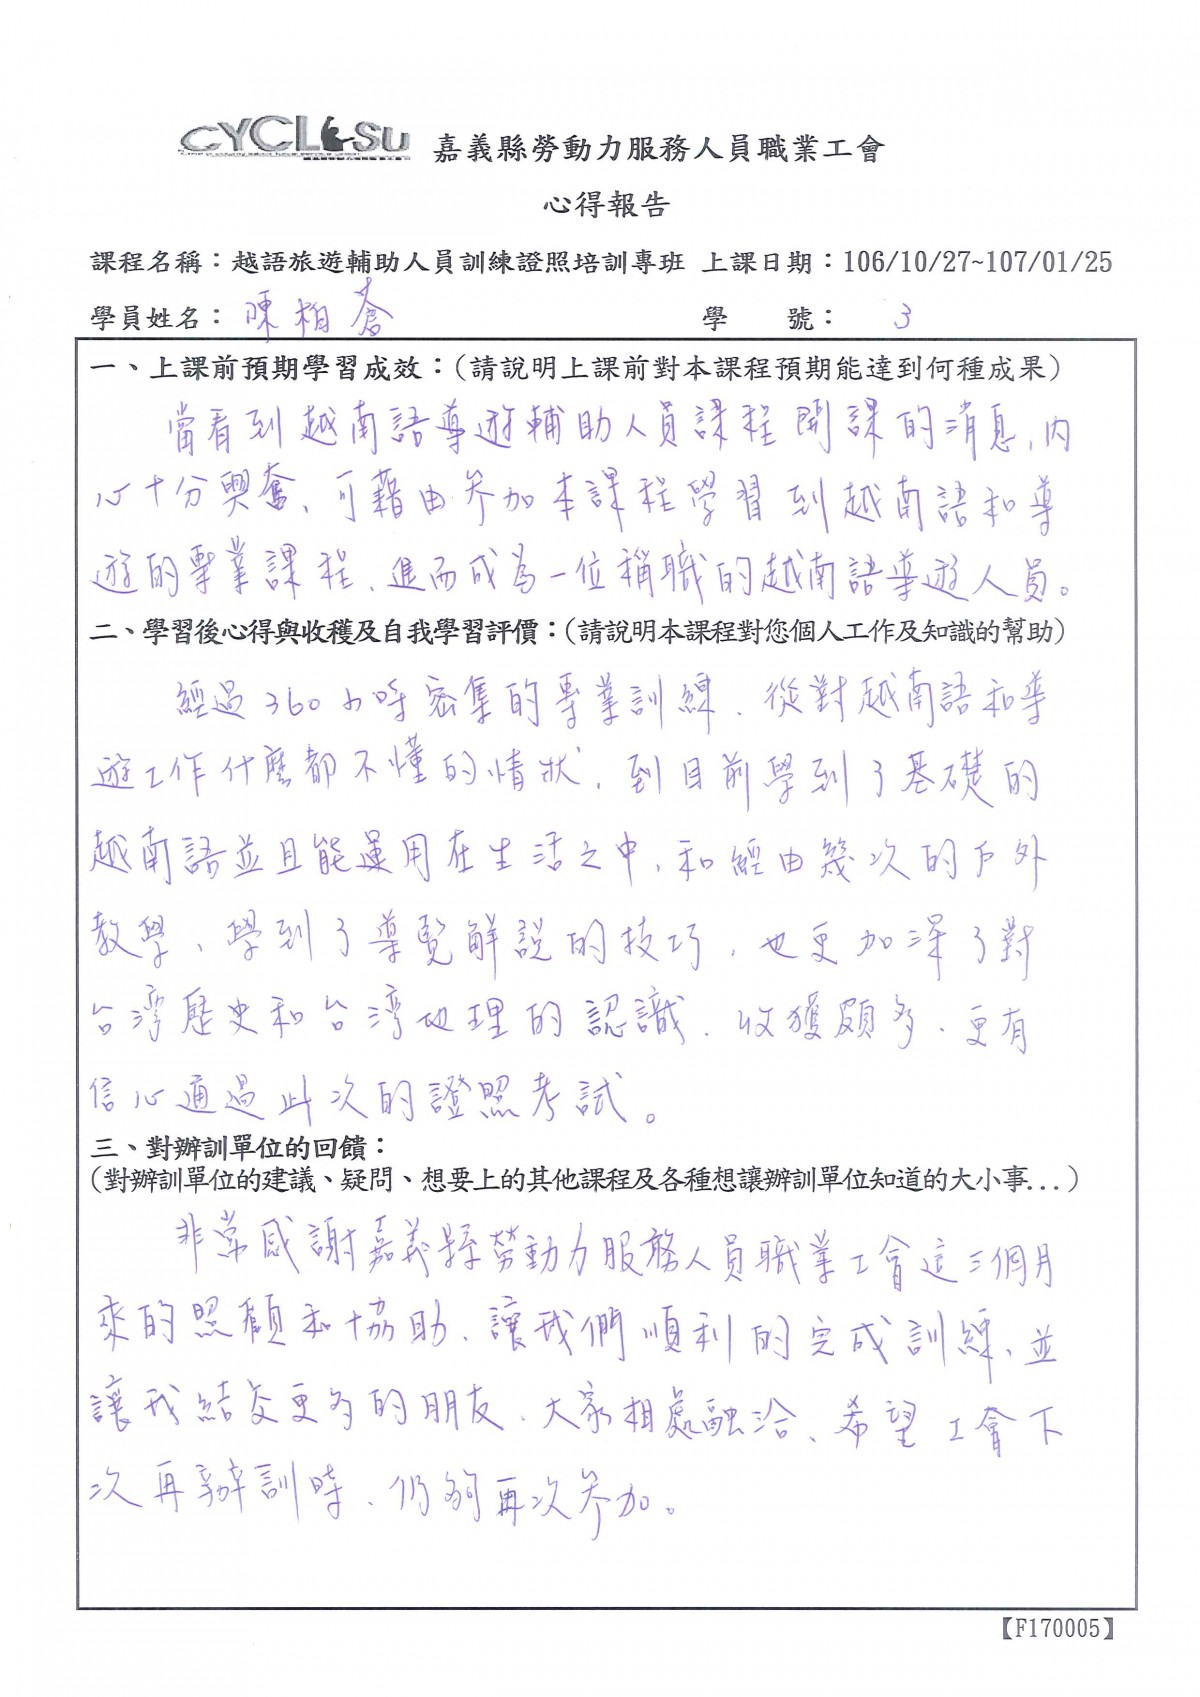 CYCLSU 嘉義縣勞動力服務人員職業工會
心得報告
課程名稱：越語旅遊輔助人員訓練證照培訓專班 上課日期：106/10/27~107/01/25
學員姓名：陳柏蒼 學 號：3
一、上課前預期學習成效：(請說明上課前對本課程預期能達到何種成果)
當看到越南語導遊輔助人員課程開課的消息，內
心十分興奮、可藉由參加本課程學習到越南語和導
遊的專業課程、進而成為一位稱職的越南語導遊人員。
二、學習後心得與收穫及自我學習評價：(請說明本課程對您個人工作及知識的幫助)
經過360小時密集的專業訓練、從對越南語和導
遊工作什麼都不懂的情狀，到目前學到了基礎的
越南語並且能運用在生活之中，和經由幾次的戶外
教學、學到了導覽解說的技巧，也更加深了對
台灣歷史和台灣地理的認識、收獲頗多、更有
信心通過此次的證照考試。
三、對辦訓單位的回饋：
(對辦訓單位的建議、疑問、想要上的其他課程及各種想讓辦訓單位知道的大小事...)
非常感謝嘉義縣勞動力服務人員職業工會這三個月
來的照顧和協助、讓我們順利的完成訓練、並
讓我結交更多的朋友、大家相處融洽、希望工會下
次再辦訓時、仍夠再次參加。
【F170005】